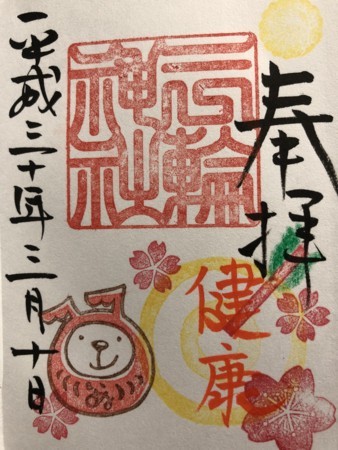 奉拝
三輪
神社
健康
平成三十年三月十日